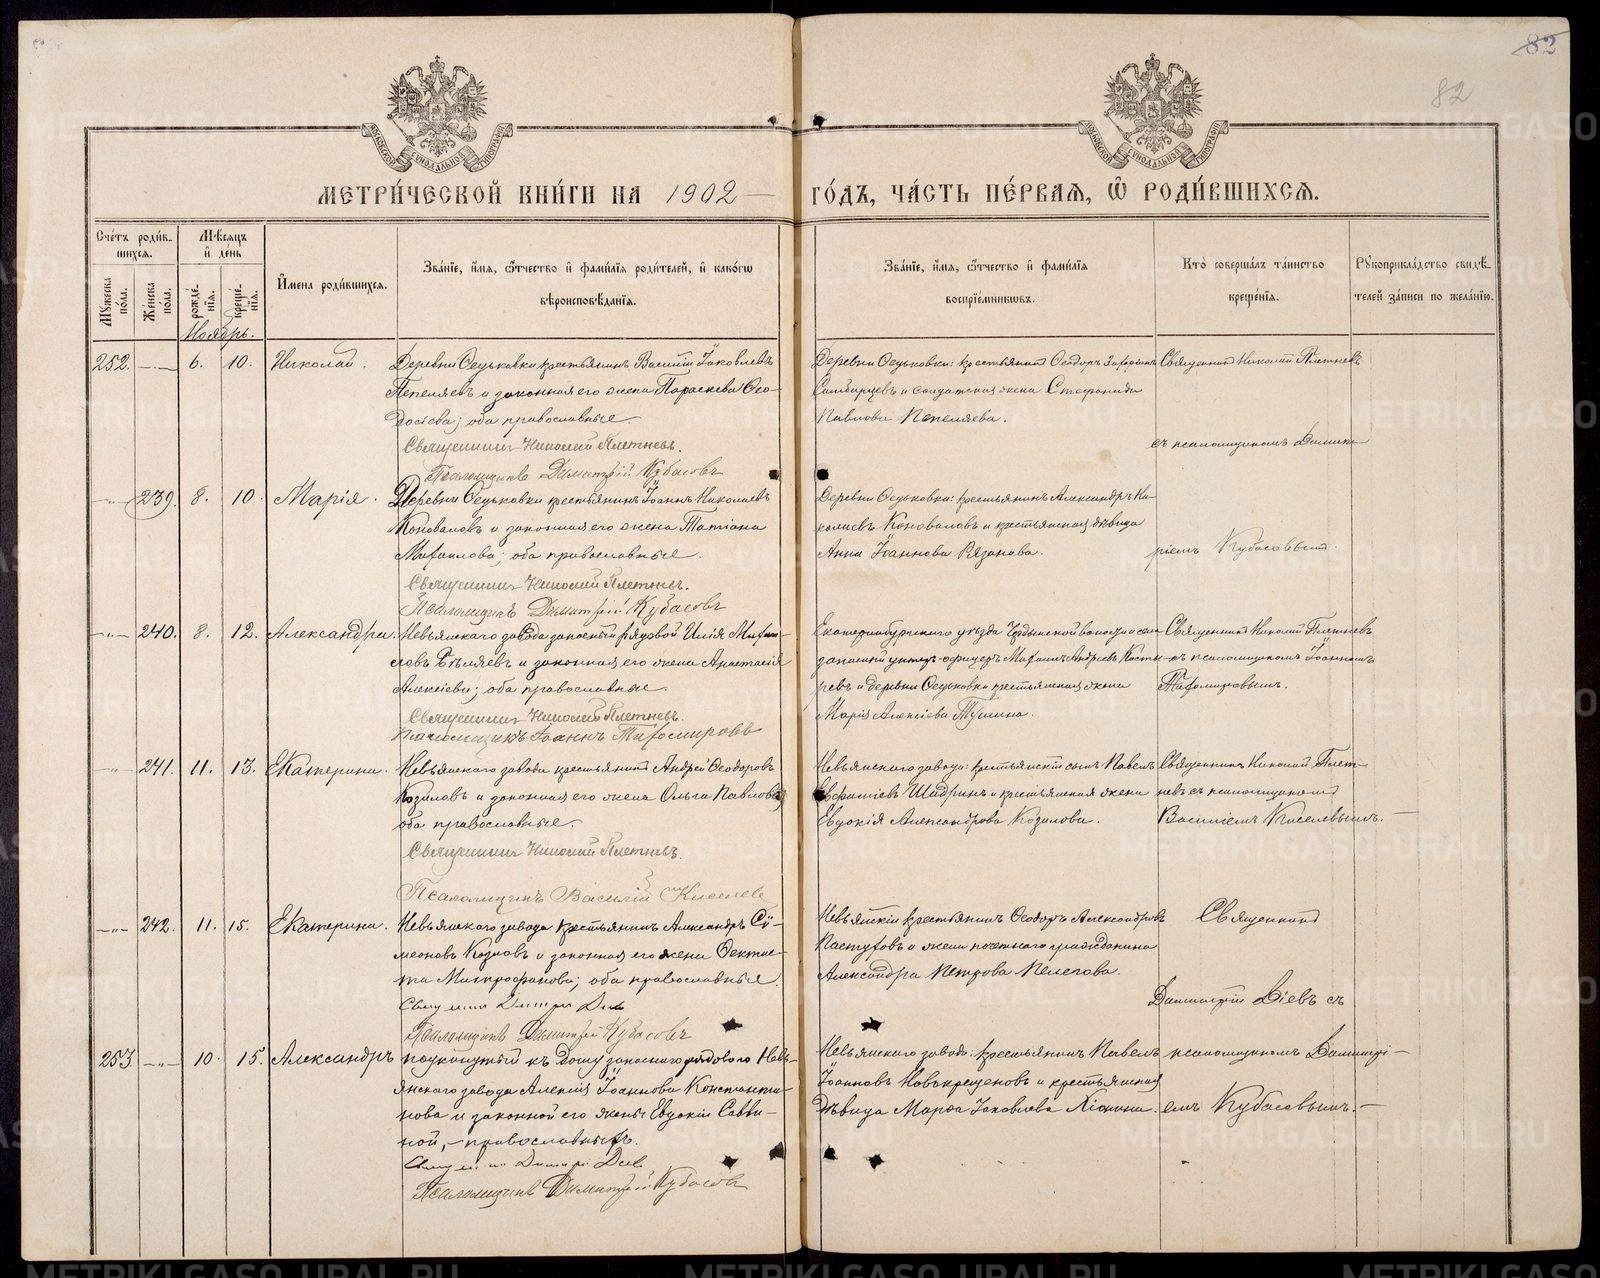 82
82
МОСКОВСКОЙ СѴНОДАЛЬНОЙ ТИПОГРАФІИ
МОСКОВСКОЙ СѴНОДАЛЬНОЙ ТИПОГРАФІИ
МЕТРИ́ЧЕСКОЙ КНИ́ГИ НА 1902 — ГО́ДЪ, ЧА́СТЬ ПЕ́РВАЯ, Ѡ РОДИ́ВШИХСЯ.
Сче́тъ роди́вшихся.
Му́жеска по́ла.
Же́нска по́ла.
Мѣ́сяцъ и де́нь
рожде́нїя.
креще́нїя.
И҆мена роди́вшихся.
Зва́нїе, и҆́мя, ѻ҆́тчество и҆ фами́лїя роди́телей, и҆ како́гѡ вѣроисповѣ́данїя.
Зва́нїе, и҆́мя, ѻ҆́тчество и҆ фами́лїя воспрїе́мникѡвъ.
Кто̀ соверша́лъ та́инство креще́нїя.
Рꙋкоприкла́дство свидѣ́телей за́писи по жела́нїю.
Ноябрь.
252. —„— 6. 10. Николай.
Деревни Ѳедьковки крестьянинъ Василій Іаковлевъ
Пепеляевъ и законная его жена Параскева Ѳео-
досіева; оба православные
Священникъ Николай Плетневъ.
Псаломщикъ Димитрій Кубасовъ
Деревни Ѳедьковки: крестьянинъ Ѳеодоръ
и солдатская жена Стефанида
Павлова Пепеляева.
Священникъ Николай Плетневъ
съ псаломщикомъ Димит-
—„— 239. 8. 10. Марія.
Деревни Ѳедьковки крестьянинъ Іоаннъ Николаевъ
Коноваловъ и законная его жена Татіана
Михаилова; оба православные.
Священникъ Николай Плетневъ.
Псаломщикъ Димитрій Кубасовъ
Деревни Ѳедьковки: крестьянинъ Александръ Ни-
колаевъ Коноваловъ и крестьянская дѣвица
Анна Іоаннова Рязанова.
ріемъ Кубасовымъ.
—„— 240. 8. 12. Александра.
Невьянскаго завода запасный рядовой Илія Михаи-
ловъ Бѣляевъ и законная его жена Анастасія
Алексіева; оба православные.
Священникъ Николай Плетневъ.
Псаломщикъ Іоаннъ Тихомировъ
Екатеринбургскаго уѣзда
запасный унтеръ-офицеръ Михаилъ Андреевъ Косты-
ревъ и деревни Ѳедьковки крестьянская жена
Марія Алексіева Тупина.
Священникъ Николай Плетневъ
съ псаломщикомъ Іоанномъ
Тихомировымъ.
—„— 241. 11. 13. Екатерина.
Невьянскаго завода крестьянинъ Андрей Ѳеодоровъ
Козиловъ и законная его жена Ольга Павлова;
оба православные.
Священникъ Николай Плетневъ.
Псаломщикъ Василій Киселевъ
Невьянскаго завода: крестьянскій сынъ Павелъ
Евфиміевъ Шадринъ и крестьянская жена
Евдокія Александрова Козилова.
Священникъ Николай Плет-
невъ съ псаломщикомъ
Василіемъ Киселевымъ. —
—„— 242. 11. 15. Екатерина.
Невьянскаго завода крестьянинъ Александръ Сѵ-
меоновъ Козловъ и законная его жена Ѳектис-
та Митрофанова; оба православные.
Псаломщикъ Димитрій Кубасовъ
Невьянскіе крестьянинъ Ѳеодоръ Александровъ
Пастуховъ и жена почетнаго гражданина
Александра Петрова Пелегова.
Священникъ
Димитрій Діевъ съ
253. —„— 10. 15. Александръ
подкинутый къ дому запаснаго рядового Невь-
янскаго завода Алексія Іоаннова Константи-
нова и законной его жены Евдокіи Савви-
ной, — православныхъ.
Псаломщикъ Димитрій Кубасовъ
Невьянскаго завода: крестьянинъ Павелъ
Іоанновъ Новокрещеновъ и крестьянская
дѣвица Марѳа Іаковлева
псаломщикомъ Димитрі-
емъ Кубасовымъ. —
METRIKI.GASO-URAL.RU